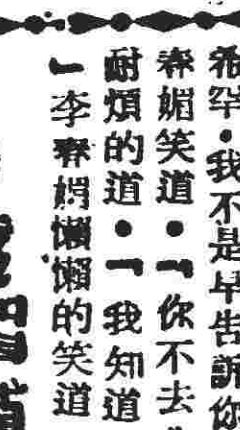 希罕·我不是早告訴你
春媚笑道：「你不去
耐煩的道：「我知道
」李春媚懶懶的笑道